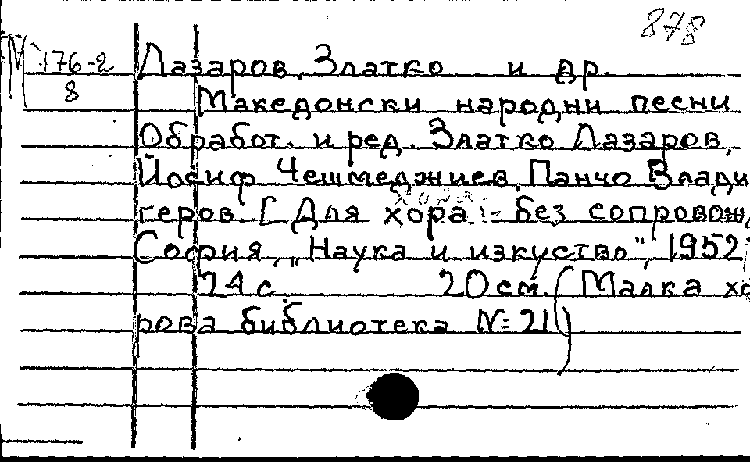 878
М 176-2 Лазаров, Златко и др.
8
Македонски народни песни
Обработ. и ред. Златко Лазаров,
Йосиф Чешмеджиев, Панчо Влади
геров. [Для хора без сопровож
София, „Наука и изкуство", 1952
24 с. 20 см. (Малка хо
рова библиотека № 21)